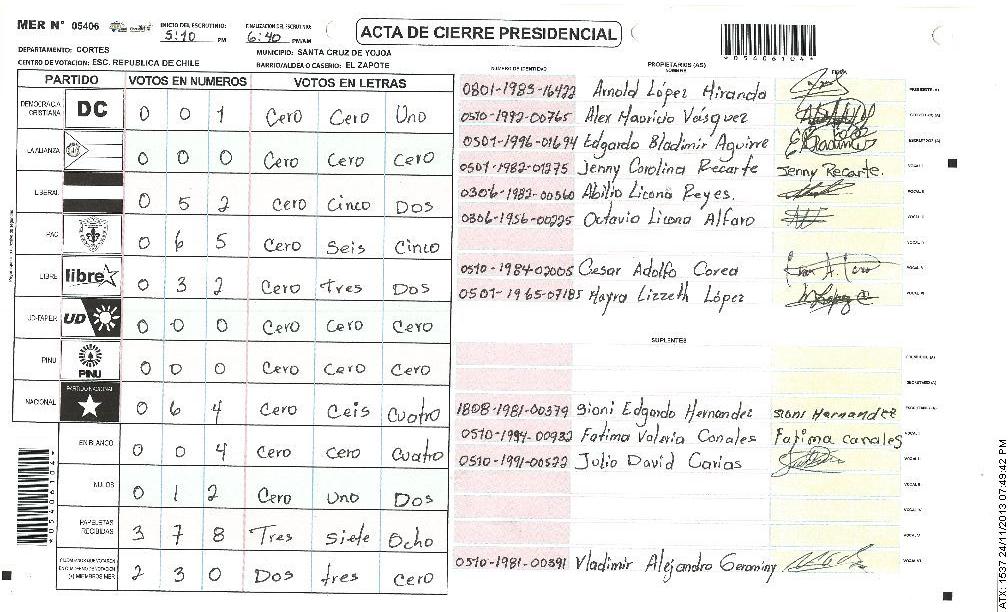 MER N° 05406
INICIO DEL ESCRUTINIO: 5:10 PM
FINALIZACION DEL ESCRUTINIO: 6:40 PM/AM
ACTA DE CIERRE PRESIDENCIAL
*05406104*
DEPARTAMENTO: CORTES
MUNICIPIO: SANTA CRUZ DE YOJOA
CENTRO DE VOTACION: ESC. REPUBLICA DE CHILE
BARRIO/ALDEA O CASERIO: EL ZAPOTE
PARTIDO VOTOS EN NUMEROS VOTOS EN LETRAS
DEMOCRACIA CRISTIANA DC 0 0 1 Cero Cero Uno
LA ALIANZA 0 0 0 Cero Cero Cero
LIBERAL 0 5 2 Cero Cinco Dos
PAC 0 6 5 Cero Seis Cinco
LIBRE libre 0 3 2 Cero tres Dos
UD-FAPER UD 0 0 0 Cero Cero Cero
PINU PINU 0 0 0 Cero Cero Cero
NACIONAL PARTIDO NACIONAL 0 6 4 Cero Ceis Cuatro
EN BLANCO 0 0 4 Cero cero Cuatro
NULOS 0 1 2 Cero Uno Dos
PAPELETAS RECIBIDAS 3 7 8 Tres siete Ocho
2 3 0 Dos tres cero
NUMERO DE IDENTIDAD PROPIETARIOS (AS) NOMBRE FIRMA
0801-1983-16422 Arnold López Miranda PRESIDENTE (A)
0510-1992-00765 Alex Mauricio Vasquez
0501-1996-01694 Edgardo Bladimir Aguirre
0501-1982-01275 Jenny Carolina Recarte Jenny Recarte. VOCAL I
0306-1982-00560 Abilio Licona Reyes. VOCAL II
0306-1956-00225 Octavio Licona Alfaro
0510-1984-02005 Cesar Adolfo Corea
0501-1965-07185 Mayra Lizzeth López
SUPLENTES
PRESIDENTE (A)
SECRETARIO (A)
1808-1981-00379 Sioni Edgardo Hernandez Sioni Hernandez
0510-1994-00932 Fatima Valeria Canales Fatima canales VOCAL I
0510-1991-00522 Julio David Carias
0510-1981-00391 Vladimir Alejandro Geronimy
*05406104*
ATX: 1537 24/11/2013 07:49:42 PM